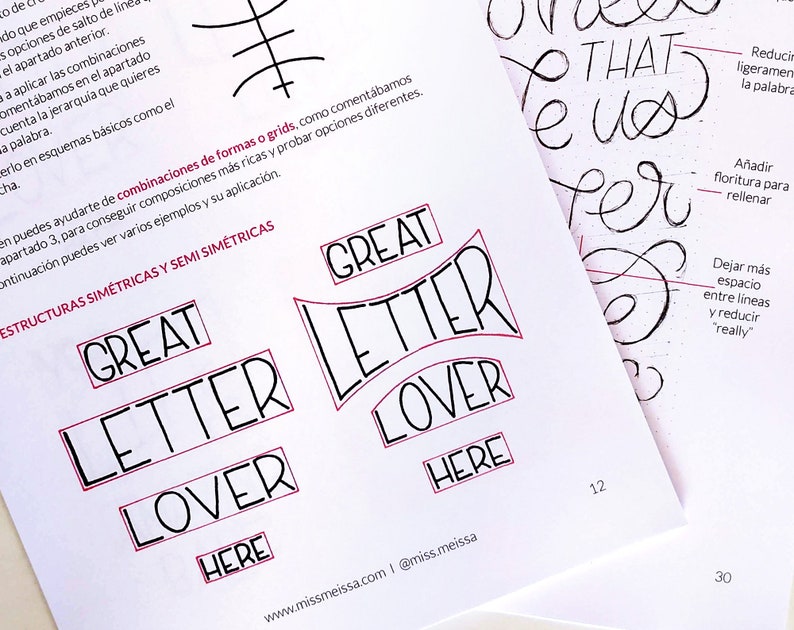 to de
ndo que empieces po
s opciones de salto de línea q
n el apartado anterior.
a a aplicar las combinaciones
comentábamos en el apartado
cuenta la jerarquía que quieres
a palabra.
cerlo en esquemas básicos como el
cha.
en puedes ayudarte de combinaciones de formas o grids, como comentábamos
apartado 3, para conseguir composiciones más ricas y probar opciones diferentes.
ontinuación puedes ver varios ejemplos y su aplicación.
ESTRUCTURAS SIMÉTRICAS Y SEMI SIMÉTRICAS
GREAT
LETTER
LOVER
HERE
GREAT
LETTER
LOVER
HERE
12
www.missmeissa.com | @miss.meissa
THAT
Reducir
ligeramen
la palabra
Añadir
floritura para
rellenar
Dejar más
espacio
entre líneas
y reducir
"really"
30